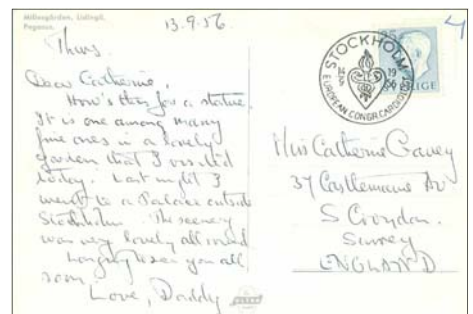 Millesgården, Lidingö.
Pegasus.
13.9.56
4
Thurs.
Dear Catherine,
How's this for a statue.
It is one among many
fine ones in a lovely
garden that I visited
today. Last night I
went to a Palace outside
Stockholm. The scenery
was very lovely all round
Longing to see you all
soon.
Love, Daddy
STOCKHOLM
EUROPEAN CONGR CARDIOL
SVERIGE
Miss Catherine
37 Castlemaine Av
S Croydon.
Surrey
ENGLAND